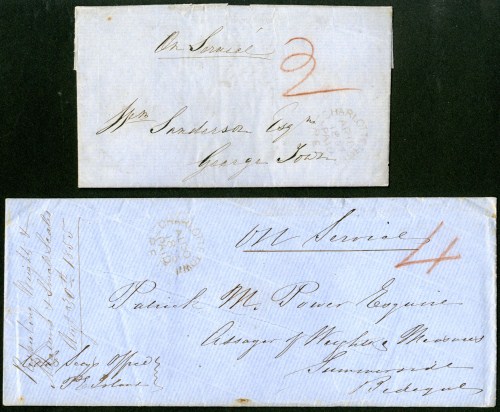 On Service
2
Wm Sanderson Esqr
George Town
CHARLOTTE
On Service
4
Patrick M. Power Esquire
Assayer of Weights & Measures
Summerside
Bedeque
Weight &
August 6th 1855
Secy's Office
P. E. Island